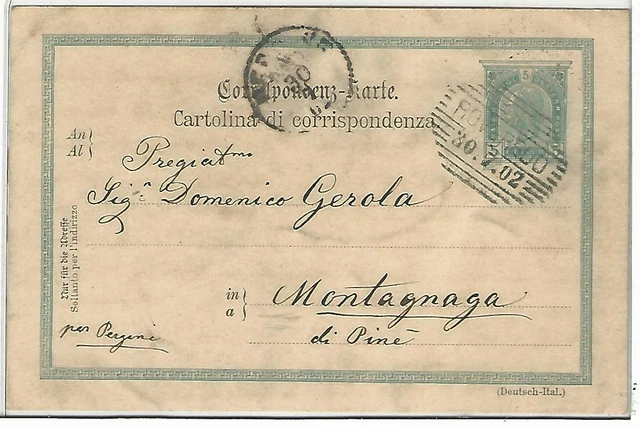 Correspondenz-Karte.
Cartolina di corrispondenza
5
5 5
ROVEREDO
30.7.02
An
Al
Pregiatmo
Sigr Domenico Gerola
Nur für die Adresse
Soltanto per l'indirizzo
in
a
Montagnaga
di Pinè
per Pergine
(Deutsch-Ital.)